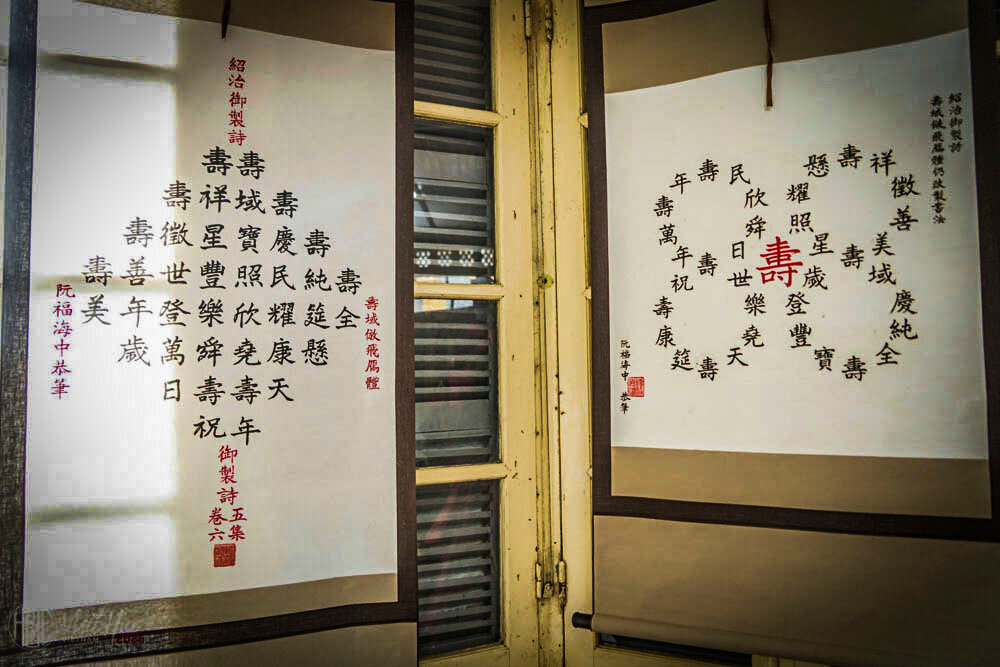 紹治御製詩
壽域倣飛鴈體
壽全
壽純筵懸
壽慶民耀康天
壽域寶照欣堯壽年
壽祥星豐樂舜壽祝
壽徵世登萬日
壽善年歲
壽美
阮福海中恭筆
御製詩
五集
卷六
紹治御製詩
壽域倣飛鴈體仍改製書法
懸壽祥徵善
美域慶純全
壽寶豐登歲星照耀
壽
壽
民欣舜日世樂堯天
壽筵康壽
祝年萬壽年壽
壽
阮福海中 恭筆
VIETNAM